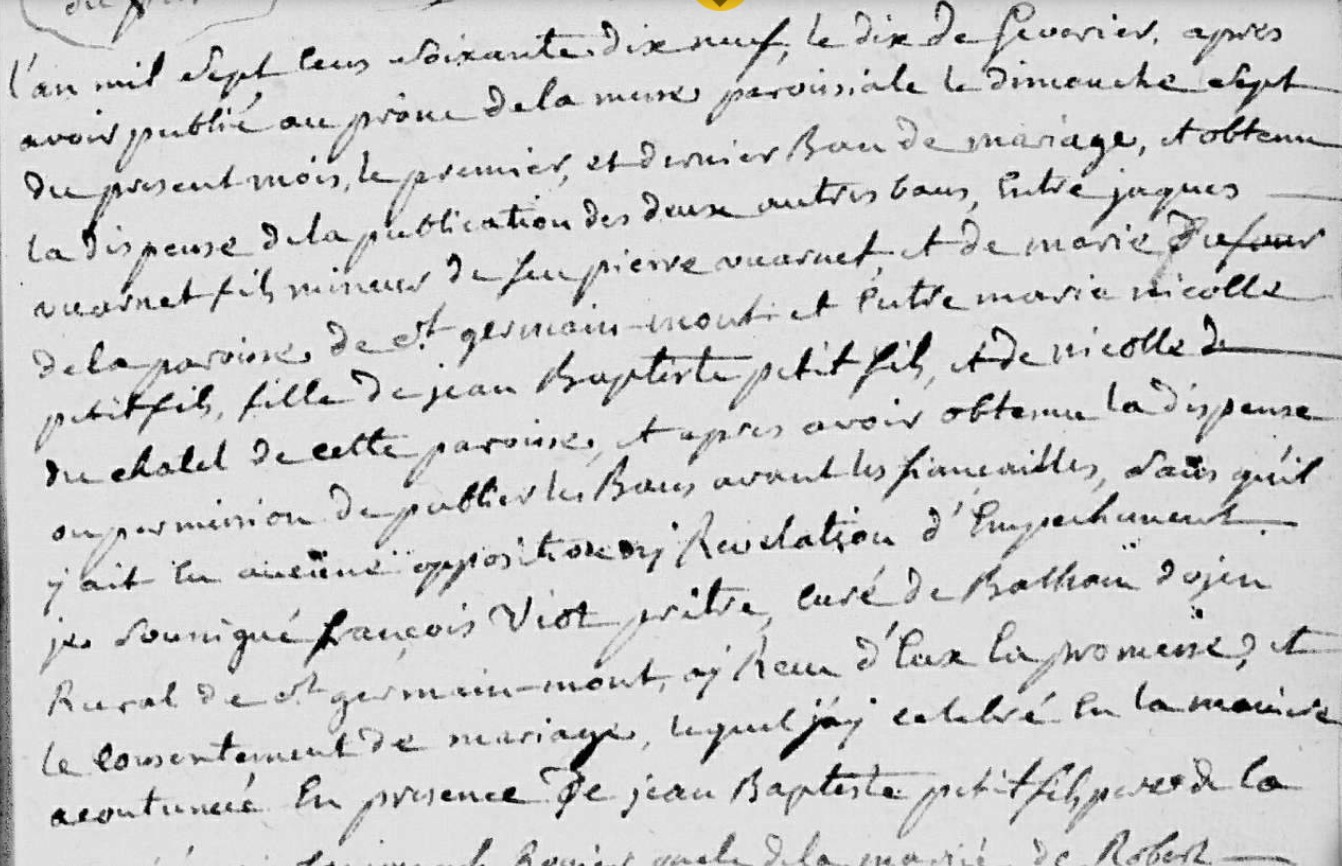 l'an mil sept cens soixante dix neuf, le dix de fevorier. apres
avoir publié au prône de la messe paroissiale le dimanche sept
du present mois, le premier, et dernier Ban de mariage, et obtenu
la dispense de la publication des deux autres bans, Entre jaques
vuarnet fils mineur de feu pierre vuarnet, et de marie Dufour
de la paroisse de st germain-mont et Entre marie nicolle
petitfils, fille de jean Baptiste petit fils, et de nicolle d
du chalet de cette paroisse, et apres avoir obtenu la dispense
ou permission de publier les Bans avant les fiancailles, sans qu'il
y ait Eu aucune opposition ny Revelation d'Empechement
je soussigné françois Viot prêtre, curé de Balham doyen
Rural de st germain-mont, ay Receu d'Eux la promesse, et
le consentement de mariage, lequel j'ay celebré En la maniere
acoutumée En presence De jean Baptiste petitfils pere de la
de la marié de Robert